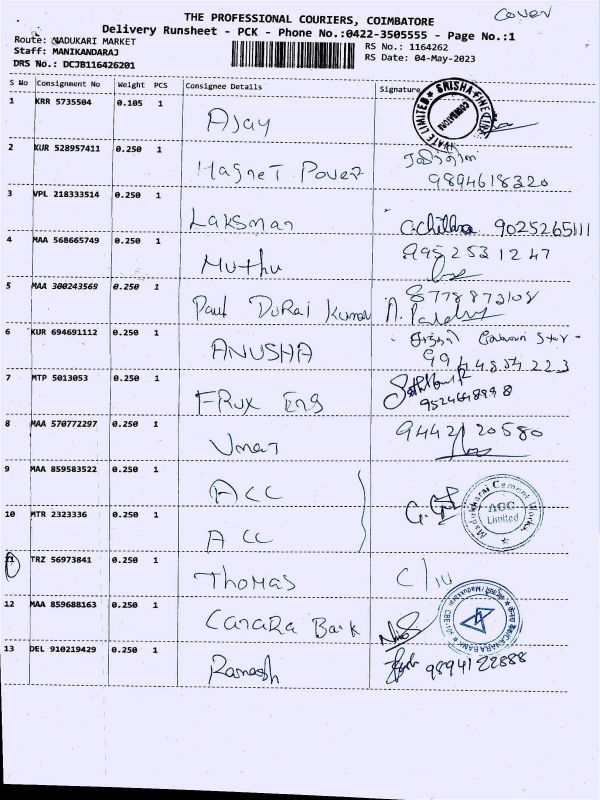 Cover
THE PROFESSIONAL COURIERS, COIMBATORE
Delivery Runsheet - PCK - Phone No.:0422-3505555 - Page No.:1
Route: NADUKARI MARKET
RS No.: 1164262
Staff: MANIKANDARAJ
RS Date: 04-May-2023
DRS No.: DCJB116426201
S No Consignment No Weight PCS Consignee Details Signature
1 KRR 5735504 0.105 1 Ajay
2 KUR 528957411 0.250 1 Magnet Power 9894618320
3 VPL 218333514 0.250 1 Laksman 9025265111
4 MAA 568665749 0.250 1 Muthu 9952531247
5 MAA 300243569 0.250 1 Paul Durai Kumar 8778873108
6 KUR 694691112 0.250 1 ANUSHA
7 MTP 5013053 0.250 1 FRux Eng
8 MAA 570772297 0.250 1 Umar 9442120580
9 MAA 859583522 0.250 1 ACC
10 MTR 2323336 0.250 1 ACC
Madukkarai Cement Works
ACC
Limited
11 TRZ 56973841 0.250 1 Thomas
12 MAA 859688163 0.250 1 Canara Bank
CANARA BANK
13 DEL 910219429 0.250 1 Ramesh 9894122888